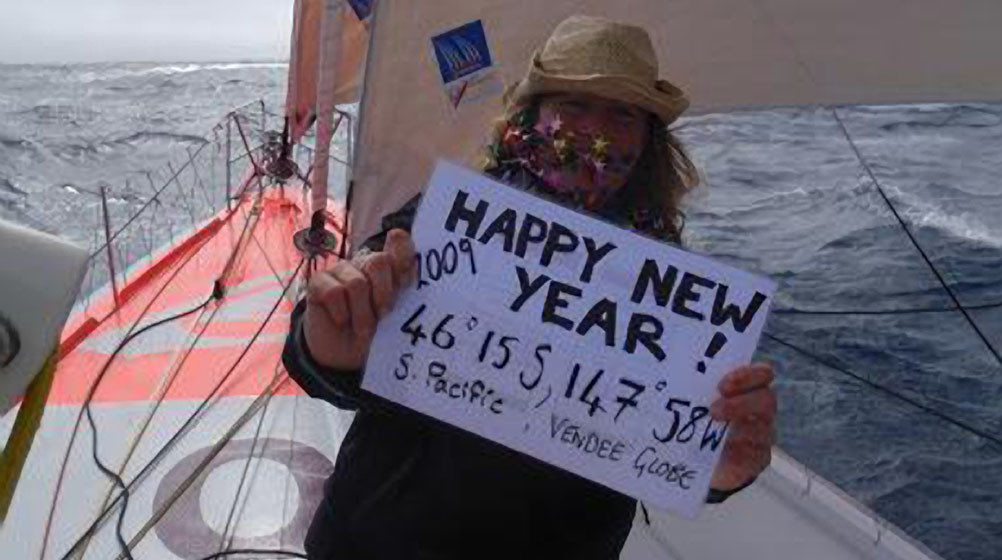 HAPPY NEW
2009 YEAR!
46°15S, 147°58W
S. Pacific, VENDEE GLOBE